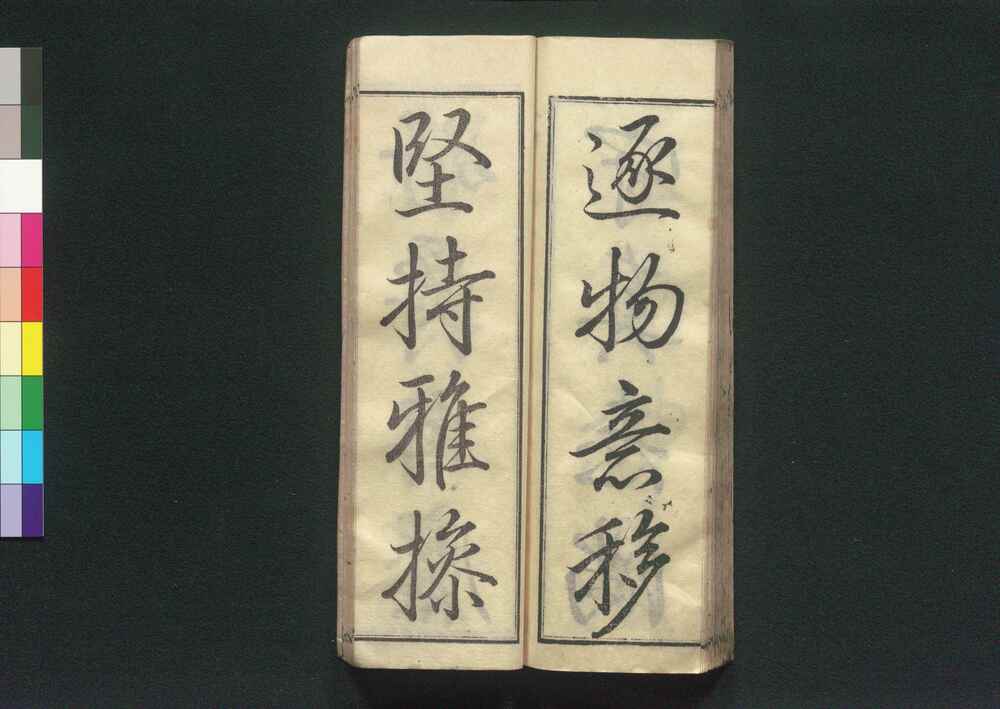 逐物意移
堅持雅操